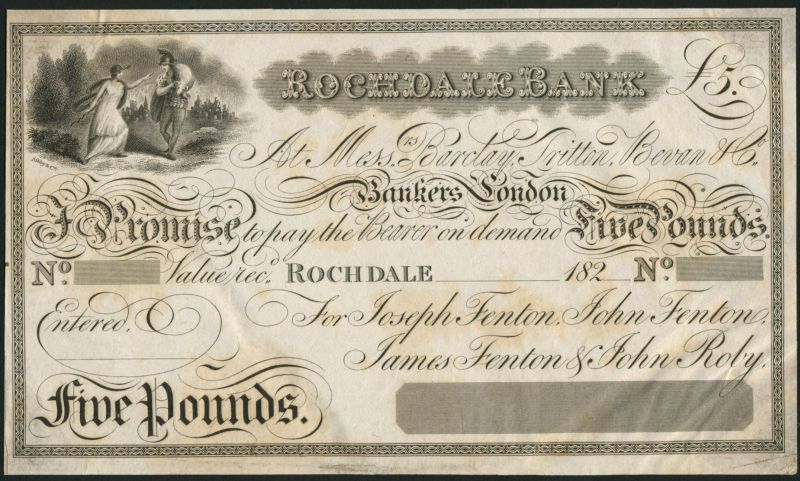 ROCHDALE BANK
£5.
At Mess.rs Barclay, Tritton, Bevan & Co.
Bankers London
I Promise to pay the Bearer on demand Five Pounds.
No. Value rec.d ROCHDALE 182 No.
Entered,
For Joseph Fenton, John Fenton,
James Fenton & John Roby,
Five Pounds.